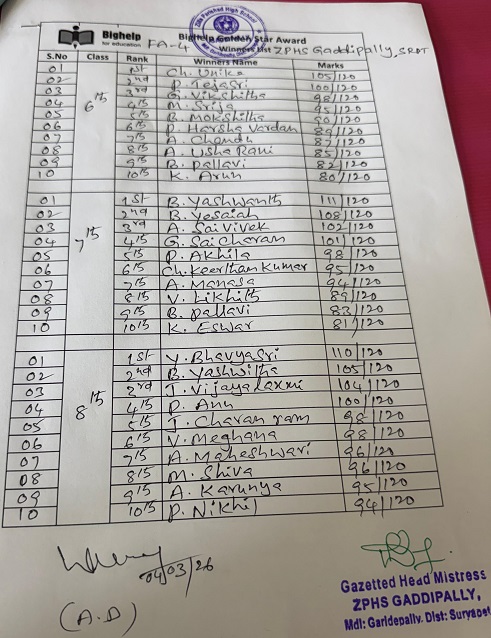 Bighelp
for education
Bighelp Golden Star Award
FA-4 Winners List ZPHS Gaddipally, SRPT
S.No Class Rank Winners Name Marks
01 6th 1st Ch. Unika 105/120
02 2nd P. Tejasri 100/120
03 3rd G. Vikshitha 98/120
04 4th M. Srija 95/120
05 5th B. Mokshitha 90/120
06 6th P. Harsha Vardan 89/120
07 7th A. Chandu 87/120
08 8th A. Usha Rani 85/120
09 9th B. Pallavi 82/120
10 10th K. Arun 80/120
01 7th 1st B. Yashwanth 111/120
02 2nd B. Yesaiah 108/120
03 3rd A. Sai Vivek 102/120
04 4th G. Sai Charam 101/120
05 5th P. Akhila 98/120
06 6th Ch. Keerthan Kumar 95/120
07 7th A. Manasa 94/120
08 8th V. Likhith 89/120
09 9th B. Pallavi 83/120
10 10th K. Eswar 81/120
01 8th 1st Y. Bhavyasri 110/120
02 2nd B. Yashwitha 105/120
03 3rd J. Vijaya Laxmi 104/120
04 4th P. Anu 100/120
05 5th J. Charan ram 98/120
06 6th V. Meghana 98/120
07 7th A. Maheshwari 96/120
08 8th M. Shiva 96/120
09 9th A. Karunya 95/120
10 10th P. Nikhil 94/120
04/03/26
(A.D)
Gazetted Head Mistress
ZPHS GADDIPALLY,
Mdl: Garidepally, Dist: Suryapet